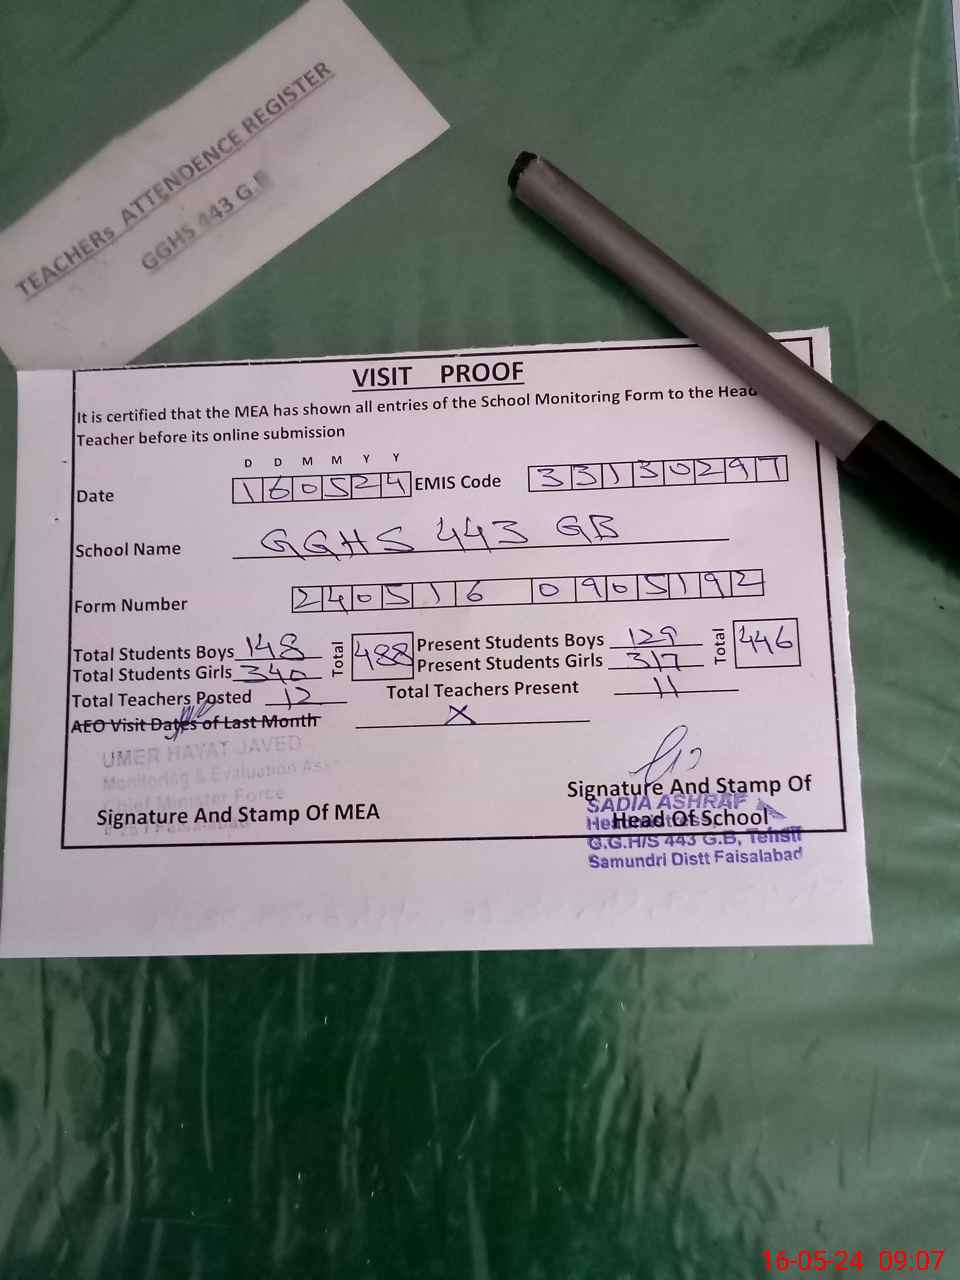 TEACHERs ATTENDENCE REGISTER
GGHS 443 G.B
VISIT PROOF
It is certified that the MEA has shown all entries of the School Monitoring Form to the Head
Teacher before its online submission
D D M M Y Y
Date 160524 EMIS Code 33130297
School Name GGHS 443 GB
Form Number 240516 0905192
Total Students Boys 148 Total 488 Present Students Boys 129 Total 446
Total Students Girls 340 Present Students Girls 317
Total Teachers Posted 12 Total Teachers Present 11
AEO Visit Dates of Last Month X
UMER HAYAT JAVED
Monitoring & Evaluation Ass
Chief Minister Force
Signature And Stamp Of MEA
Signature And Stamp Of
SADIA ASHRAF
Head Of School
G.G.H/S 443 G.B, Tehsil
Samundri Distt Faisalabad
16-05-24 09:07